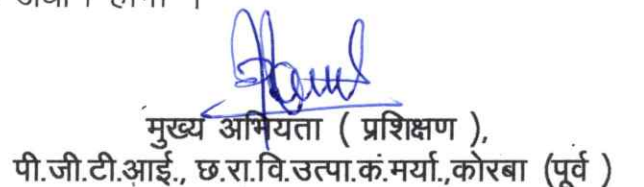 मुख्य अभियता ( प्रशिक्षण ),
पी.जी.टी.आई., छ.रा.वि.उत्पा.कं.मर्या.,कोरबा (पूर्व )